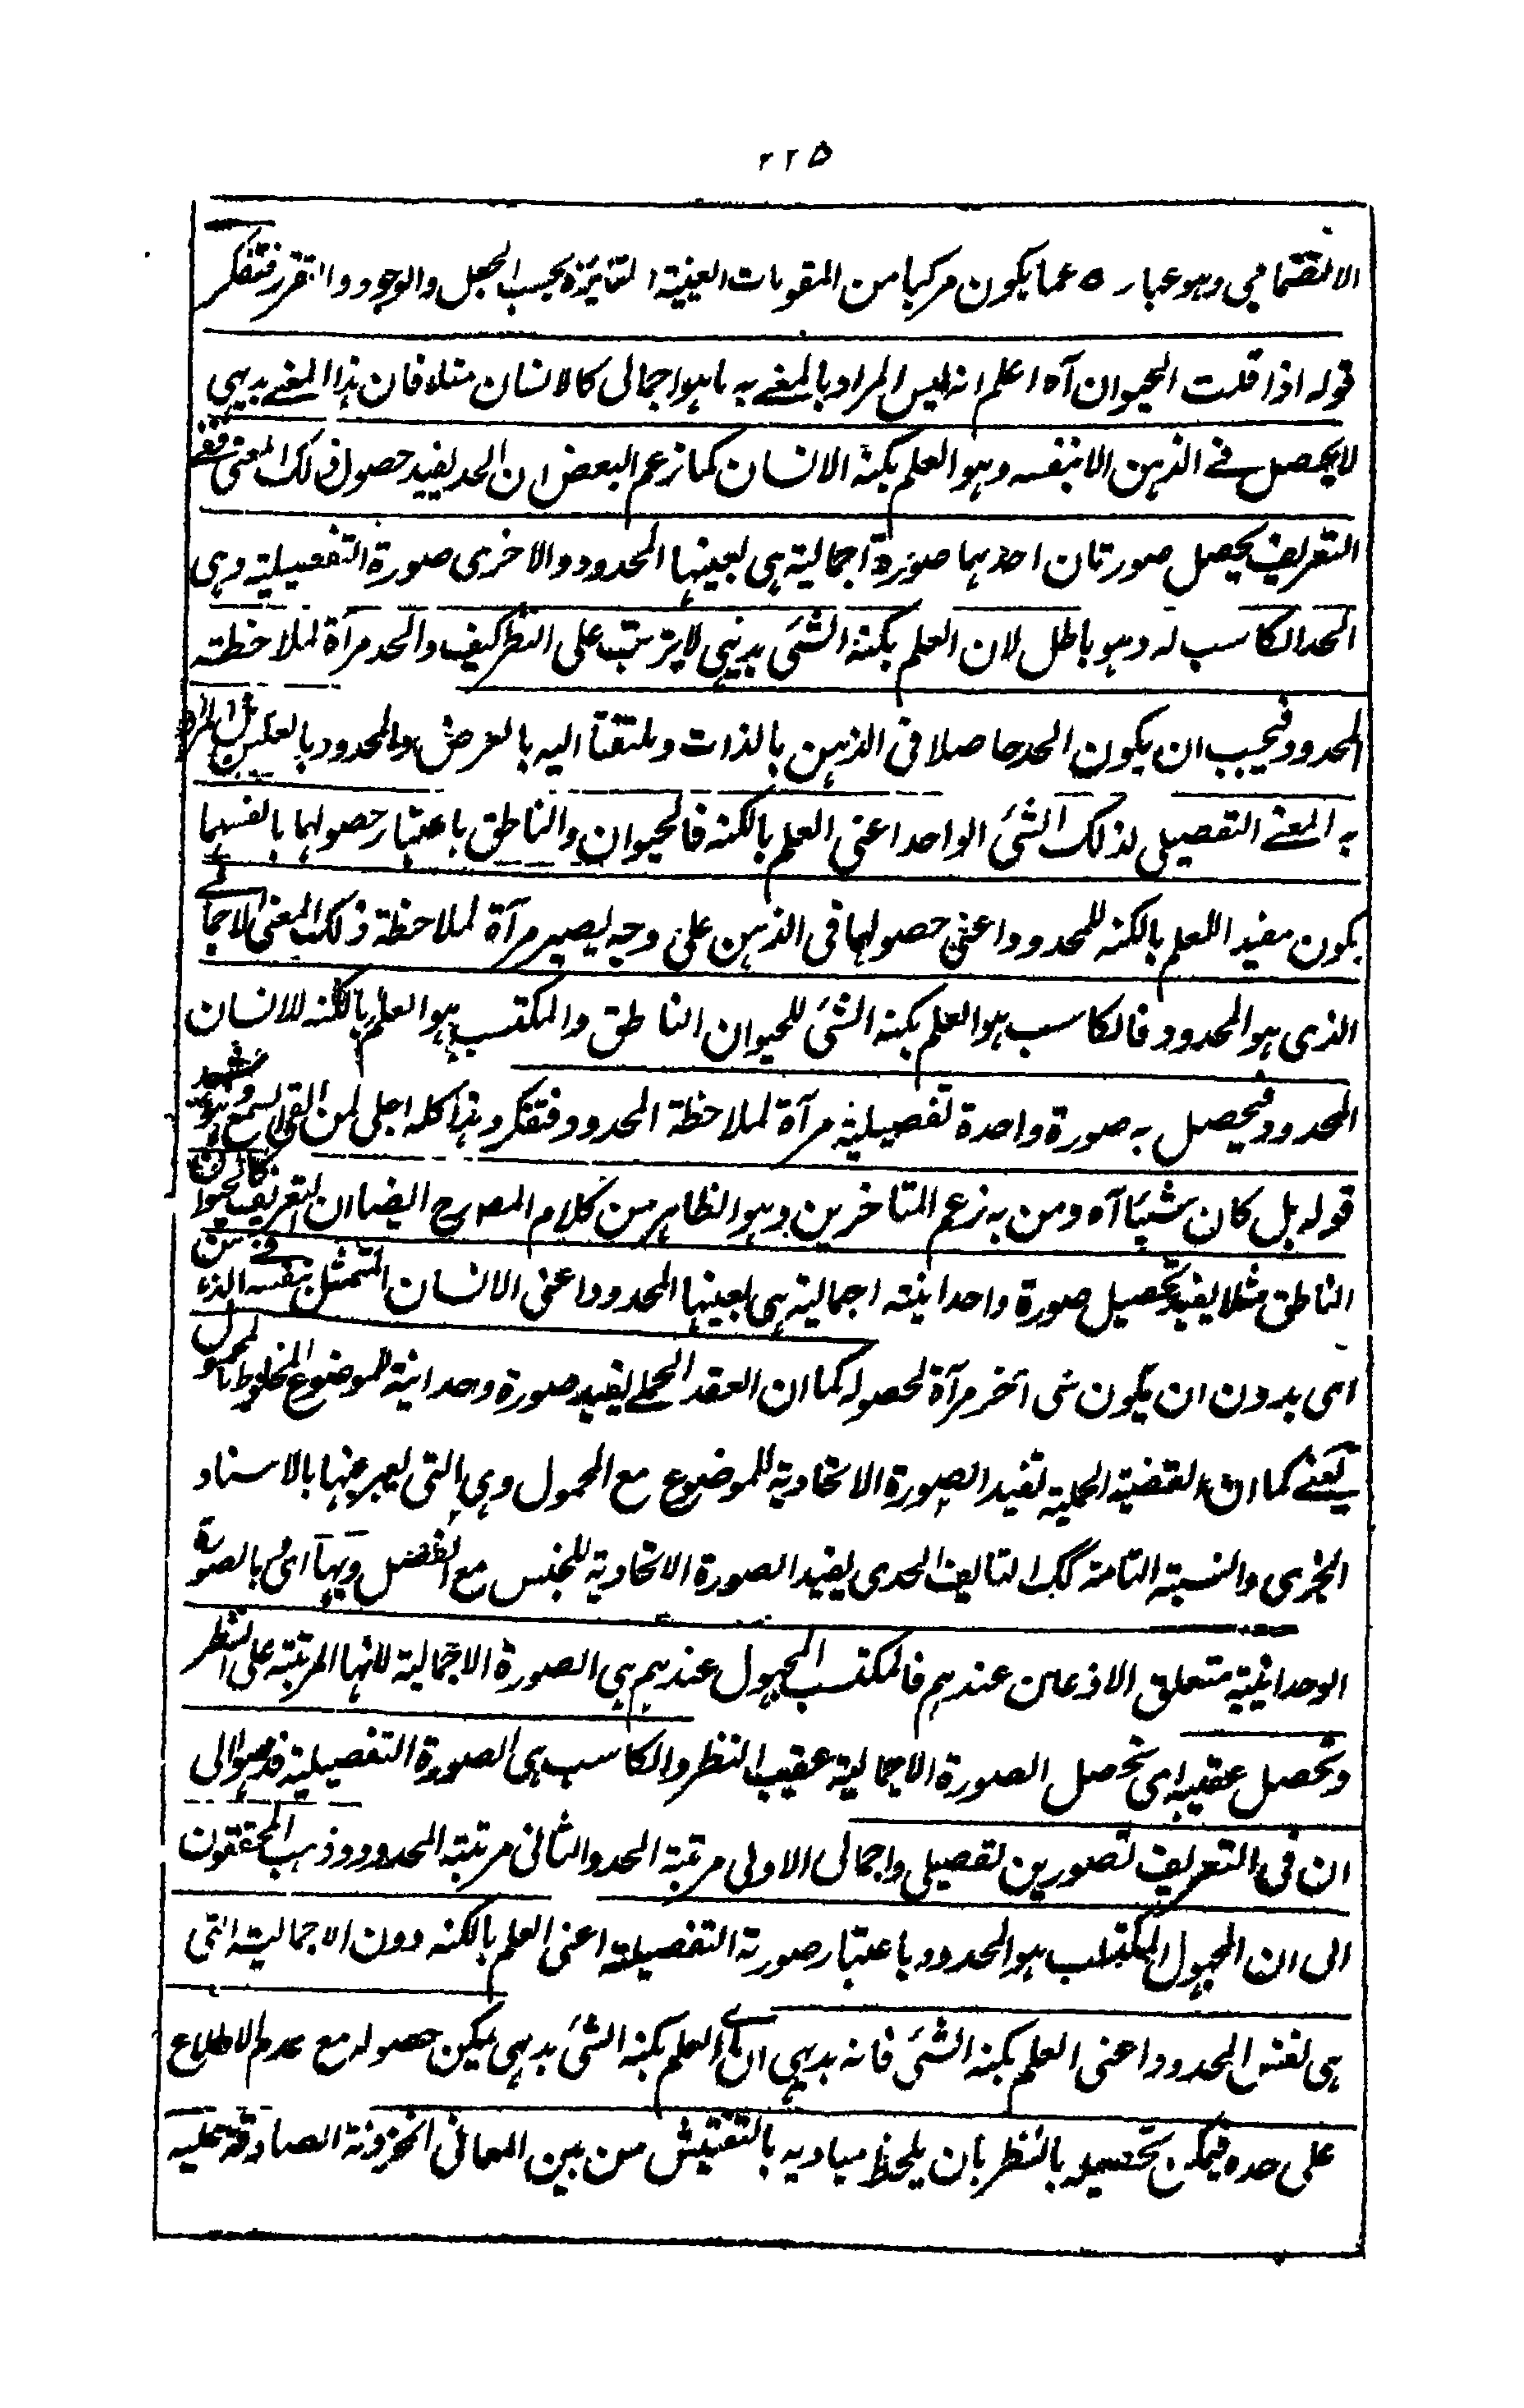 ٢٢٥
الانضمامي وهو عبارة عما يكون مركبا من المقومات العينية المتمايزة بحسب الجعل والوجود والتقرر فتفكر
قوله اذا قلت الحيوان آه اعلم انه ليس المراد بالمعنے به ما هو اجمالى كالانسان مثلا فان هذا المعنے بديهي
لا يحصل فے الذهن الا بنفسه وهو العلم بكنه الانسان كما زعم البعض ان الحد يفيد حصول ذلك المعنى ففے
التعريف يحصل صورتان احدهما صورة اجمالية هى بعينها المحدود والاخرى صورة التفصيلية وهى
الحد الكاسب له وهو باطل لان العلم بكنه الشئ بديهي لا يترتب على النظر كيف والحد مرآة لملاحظته
المحدود فيجب ان يكون الحد حاصلا فى الذهن بالذات وملتفتا اليه بالعرض والمحدود بالعكس بل المراد
به المعنے التفصيلى لذلك الشئ الواحد اعنى العلم بالكنه فالحيوان والناطق باعتبار حصولهما بانفسهما
يكون مفيدا للعلم بالكنه للمحدود اعنى حصولهما فى الذهن على وجه يصير مرآة لملاحظة ذلك المعنى الاجمالے
الذى هو المحدود فالكاسب هو العلم بكنه الشئ للحيوان الناطق والمكتسب هو العلم بالكنه للانسان
المحدود فيحصل به صورة واحدة تفصيلية مرآة لملاحظة المحدود فتفكر وهذا كله اجلى لمن القى السمع وهو شهيد
قوله بل كان شيئا آه ومن به زعم المتاخرين وهو الظاهر من كلام المصرح ايضا ان التعريف كالحيوان
الناطق مثلا يفيد تحصيل صورة واحدانية اجمالية هى بعينها المحدود اعنى الانسان المتمثل بنفسه فے الذهن
اى بدون ان يكون شى آخر مرآة لحصوله كما ان العقد الحملے يفيد صورة وحدانية للموضوع المخلوط بالمحمول
يعنے كما ان القضية الحملية تفيد الصورة الاتحادية للموضوع مع المحمول وهى التى يعبر عنها بالاسناد
الخبرى والنسبة التامة كك التاليف الحدى يفيد الصورة الاتحادية للجنس مع الفصل وبها اى بالصورة
الوحدانية متعلق الاذعان عندهم فالمكتسب المجهول عندهم هى الصورة الاجمالية لانها المرتبة على النظر
وتحصل عقيبه اى تحصل الصورة الاجمالية عقيب النظر والكاسب هى الصورة التفصيلية فذهبوا الى
ان فى التعريف تصورين تفصيلى واجمالى الاولى مرتبة الحد والثانى مرتبة المحدود وذهب المحققون
الى ان المجهول المكتسب هو المحدود باعتبار صورته التفصيلية اعنى العلم بالكنه دون الاجمالية التى
هى نفس المحدود اعنى العلم بكنه الشئ فانه بديهي اے العلم بكنه الشئ بديهى يمكن حصوله مع عدم الاطلاع
على حده فيمكن تحصيله بالنظر بان يلحظ مباديه بالتفتيش من بين المعانى المخزونة الصادقة عليه